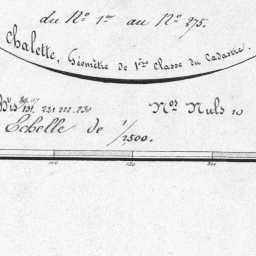 du N.º 1.er au N.º 275.
Chalette, Géomètre de 1.ère Classe du Cadastre.
Bis 131. 221 222. 230
N.os Nuls
Echelle de 1/2500.